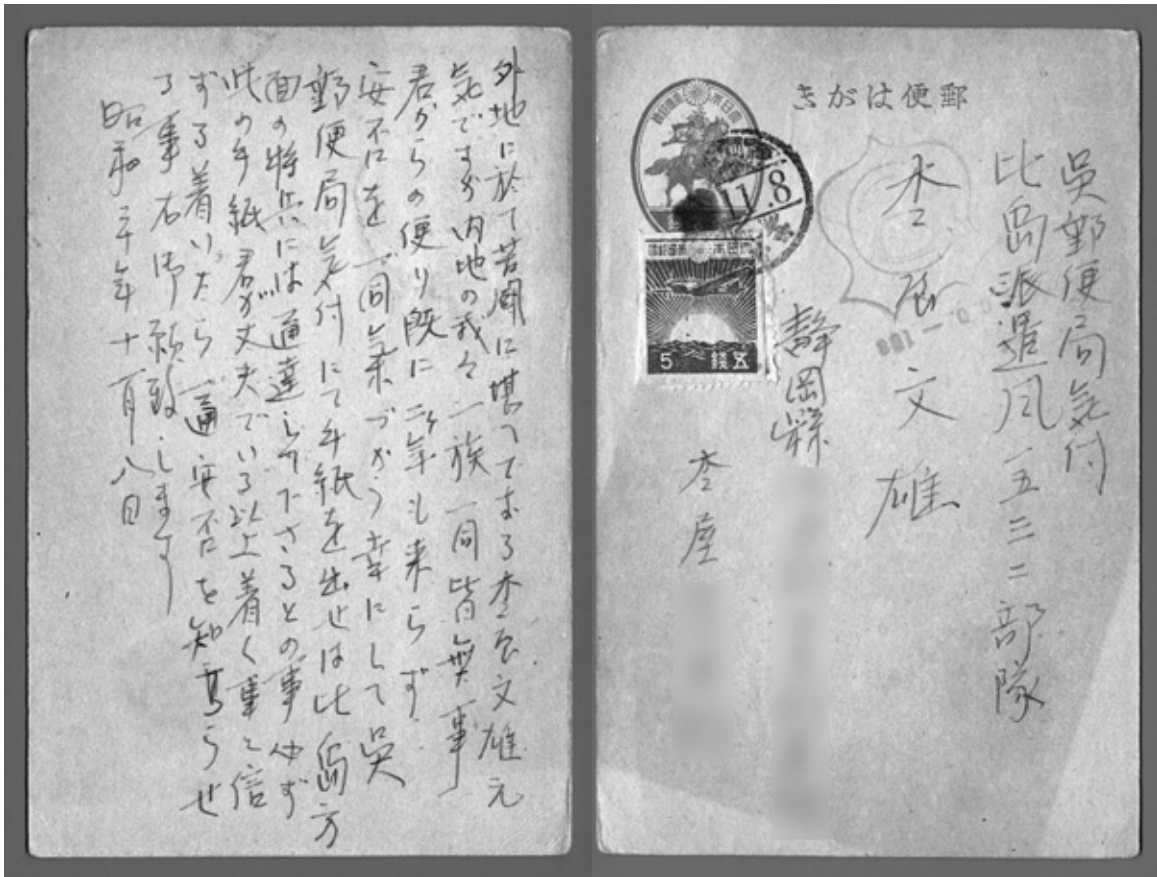 外地に於て苦闘に堪へてまる杢屋文雄元
気ですか内地の我々一族一同皆無事
君からの便り既に二ヶ年も来らず
安否を一同気づかう幸にして呉
郵便局気付にて手紙を出せは比島方
面の将兵には通達して下さるとの事必ず
此の手紙君が丈夫でいる以上着く事と信
ずる着いたら一通安否を知らせ
る事右御願致します
昭和二十年十一月八日
郵便はがき
呉郵便局気付
比島派遣風一五三二部隊
杢屋文雄
静岡縣
杢屋
11.8
5 五銭